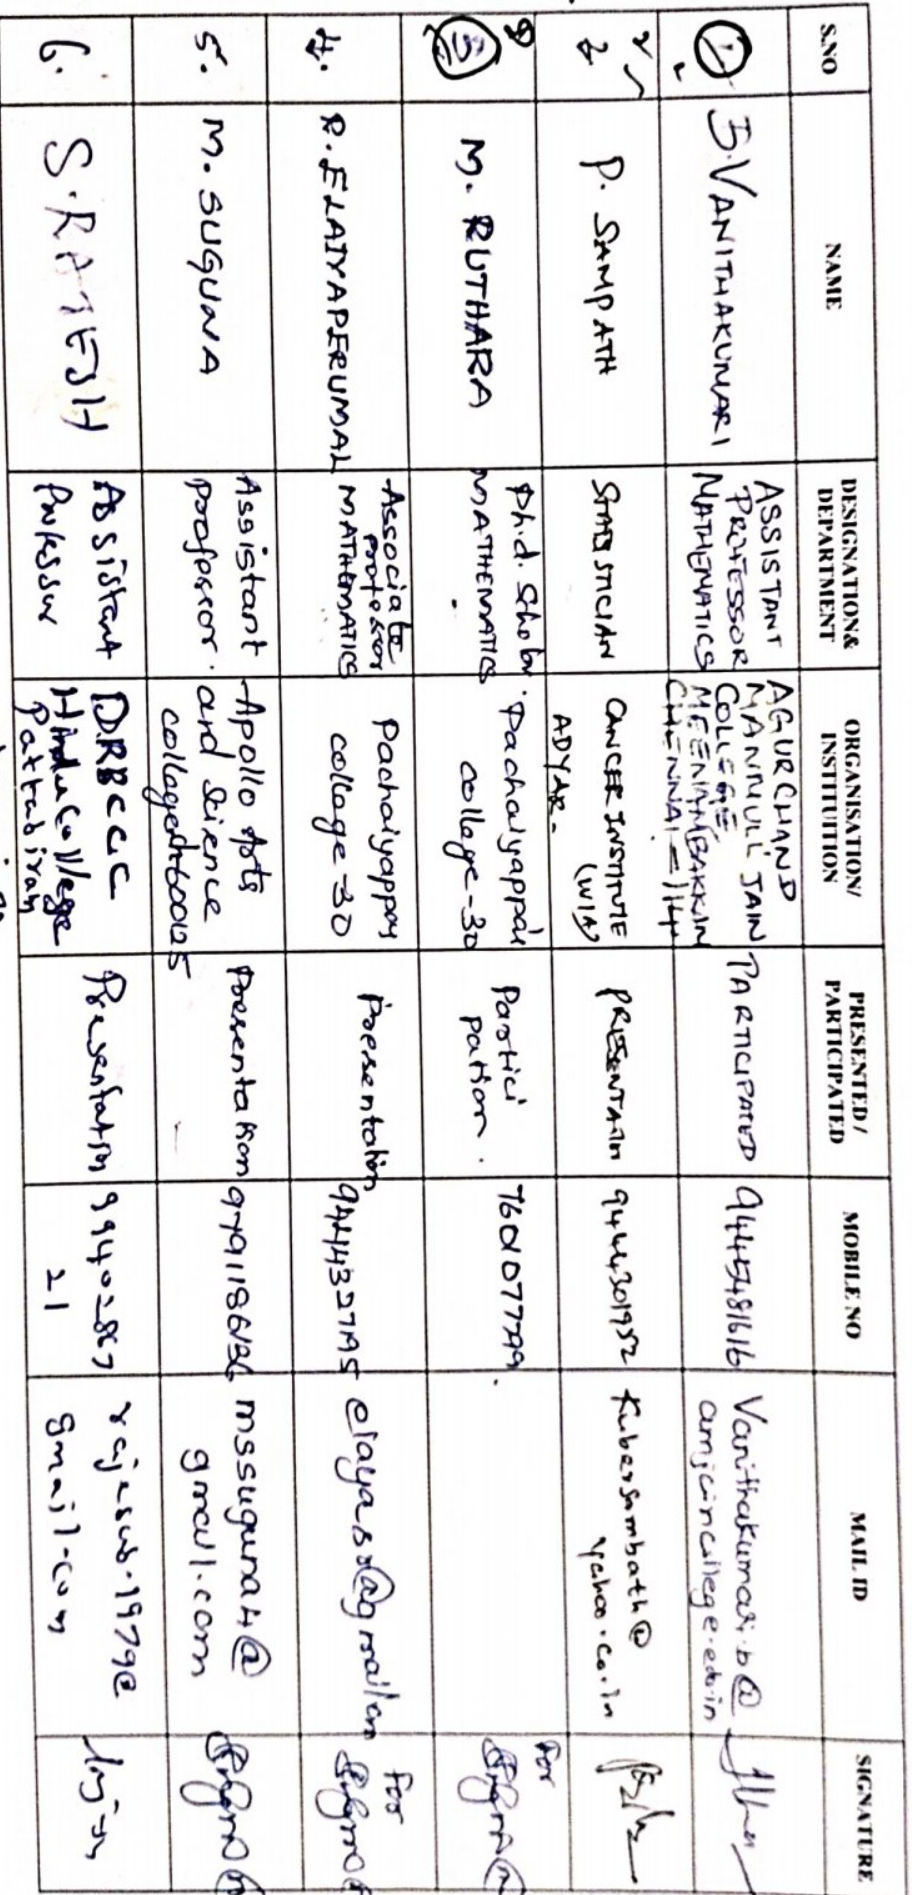 S.NO
NAME
DESIGNATION&
DEPARTMENT
ORGANISATION/
INSTITUITION
PRESENTED /
PARTICIPATED
MOBILE NO
MAIL ID
SIGNATURE
1.
B.VANITHAKUMARI
ASSISTANT
PROFESSOR
MATHEMATICS
AGURCHAND
MANMULL JAIN
COLLEGE
MEENAMBAKKAM
CHENNAI-114
PARTICIPATED
9444548161 6
Vanithakumari.b@
2
P. SAMPATH
STATISTICIAN
CANCER INSTITUTE
(WIA)
ADYAR-
PRESENTATN
9444301952
Kubersambath@
yahoo.co.in
3
M. RUTHARA
Ph.d. Scholar
MATHEMATICS
Pachaiyappa's
collage-30
Partici
pation.
For
4.
R.ELAIYAPERUMAL
Associate
professor
MATHEMATICS
Pachaiyappas
collage-30
Presentation
For
5.
M. SUGUNA
Assistant
professor.
Apollo Arts
and Science
Presentation
9791186136
mssuguna4@
gmail.com
6.
S.RAJESH
Assistant
Professor
DRBCCC
Hindu College
Pattabiram
Presentation
99402867
21
rajesub.1979@
gmail.com